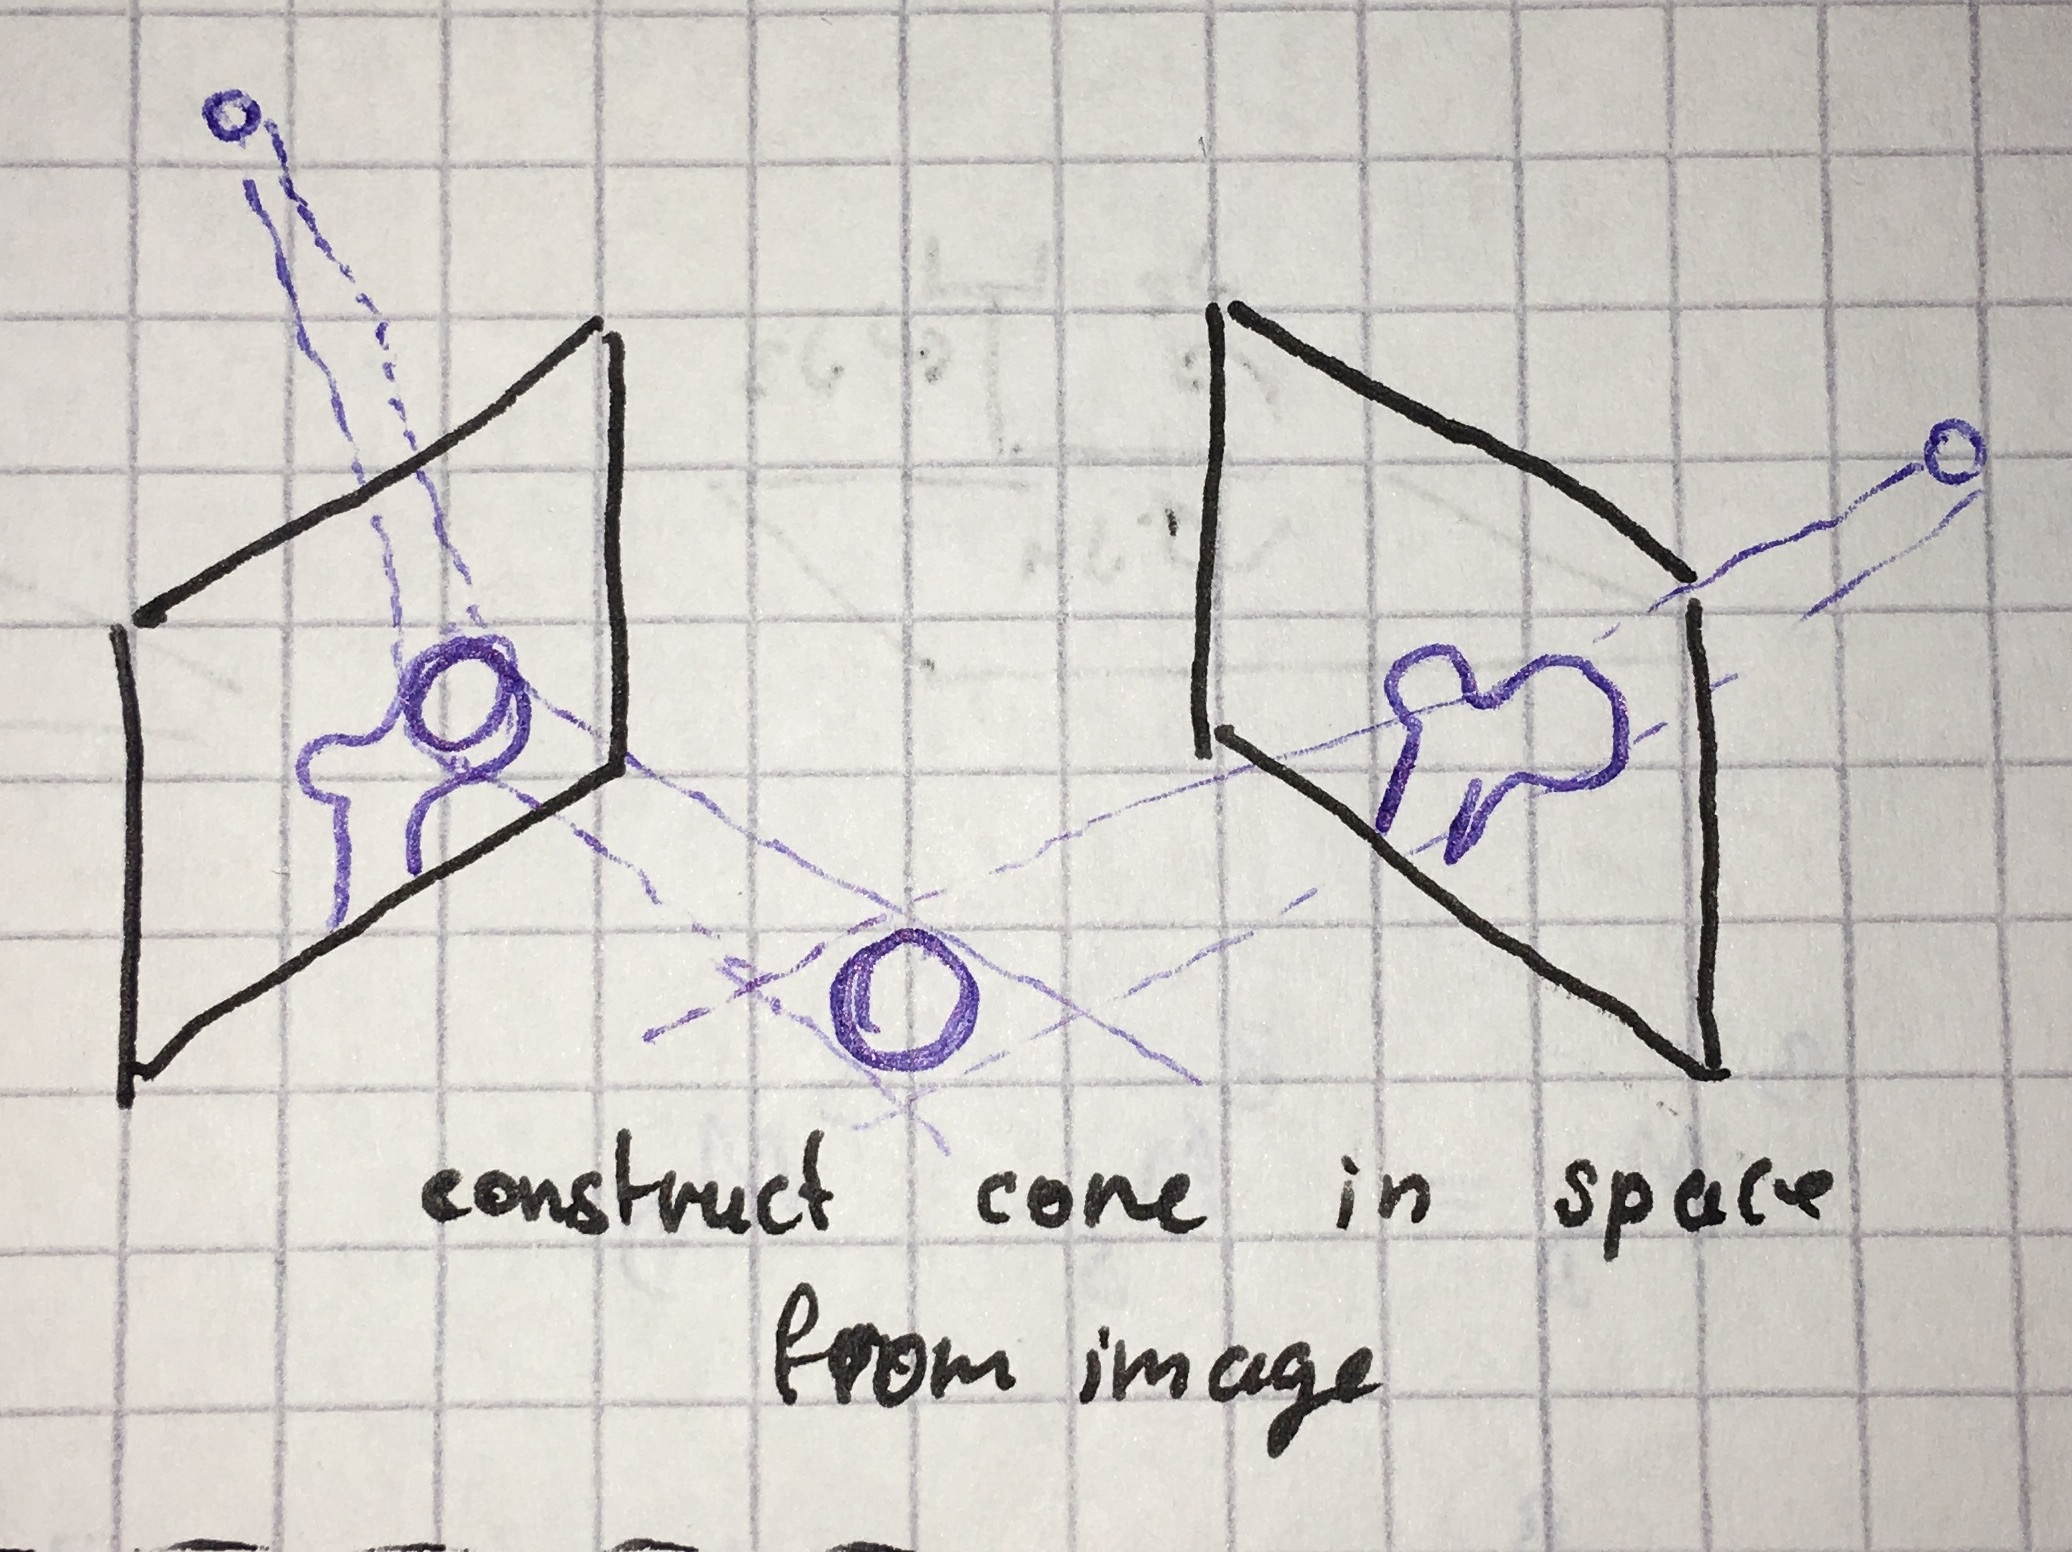 construct cone in space
from image